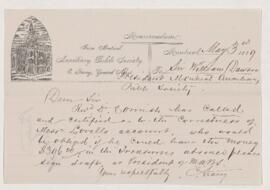 Memorandum
From Montreal
Auxiliary Bible Society,
Montreal, May 3rd 1889
To Sir William Dawson
President Montreal Auxiliary
Bible Society
Dear Sir
Revd. D. Cornish has called
and certified as to the correctness of
Messr Lovells account, who would
be obliged if he could have the money
in the Treasurers absence please
sign draft, as President of M.A.B.S.
Yours respectfully